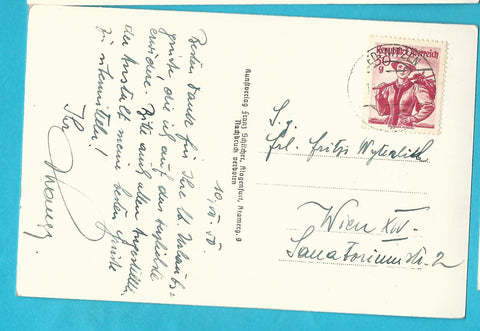 10. VII. 50.
Besten Dank für Ihre lb. Urlaubs-
grüsse, die ich auf das herzlichste
erwidere. Bitte auch allen Angestellten
der Anstalt meine besten Grüsse
zu übermitteln!
Ihr
Kunstverlag Franz Schilcher, Klagenfurt, Kramerg. 9
Nachdruck verboten
Republik Österreich
30
g
S. g.
Frl. Fritzi Wyterlich
Wien XIV.
Sanatoriumstr. 2